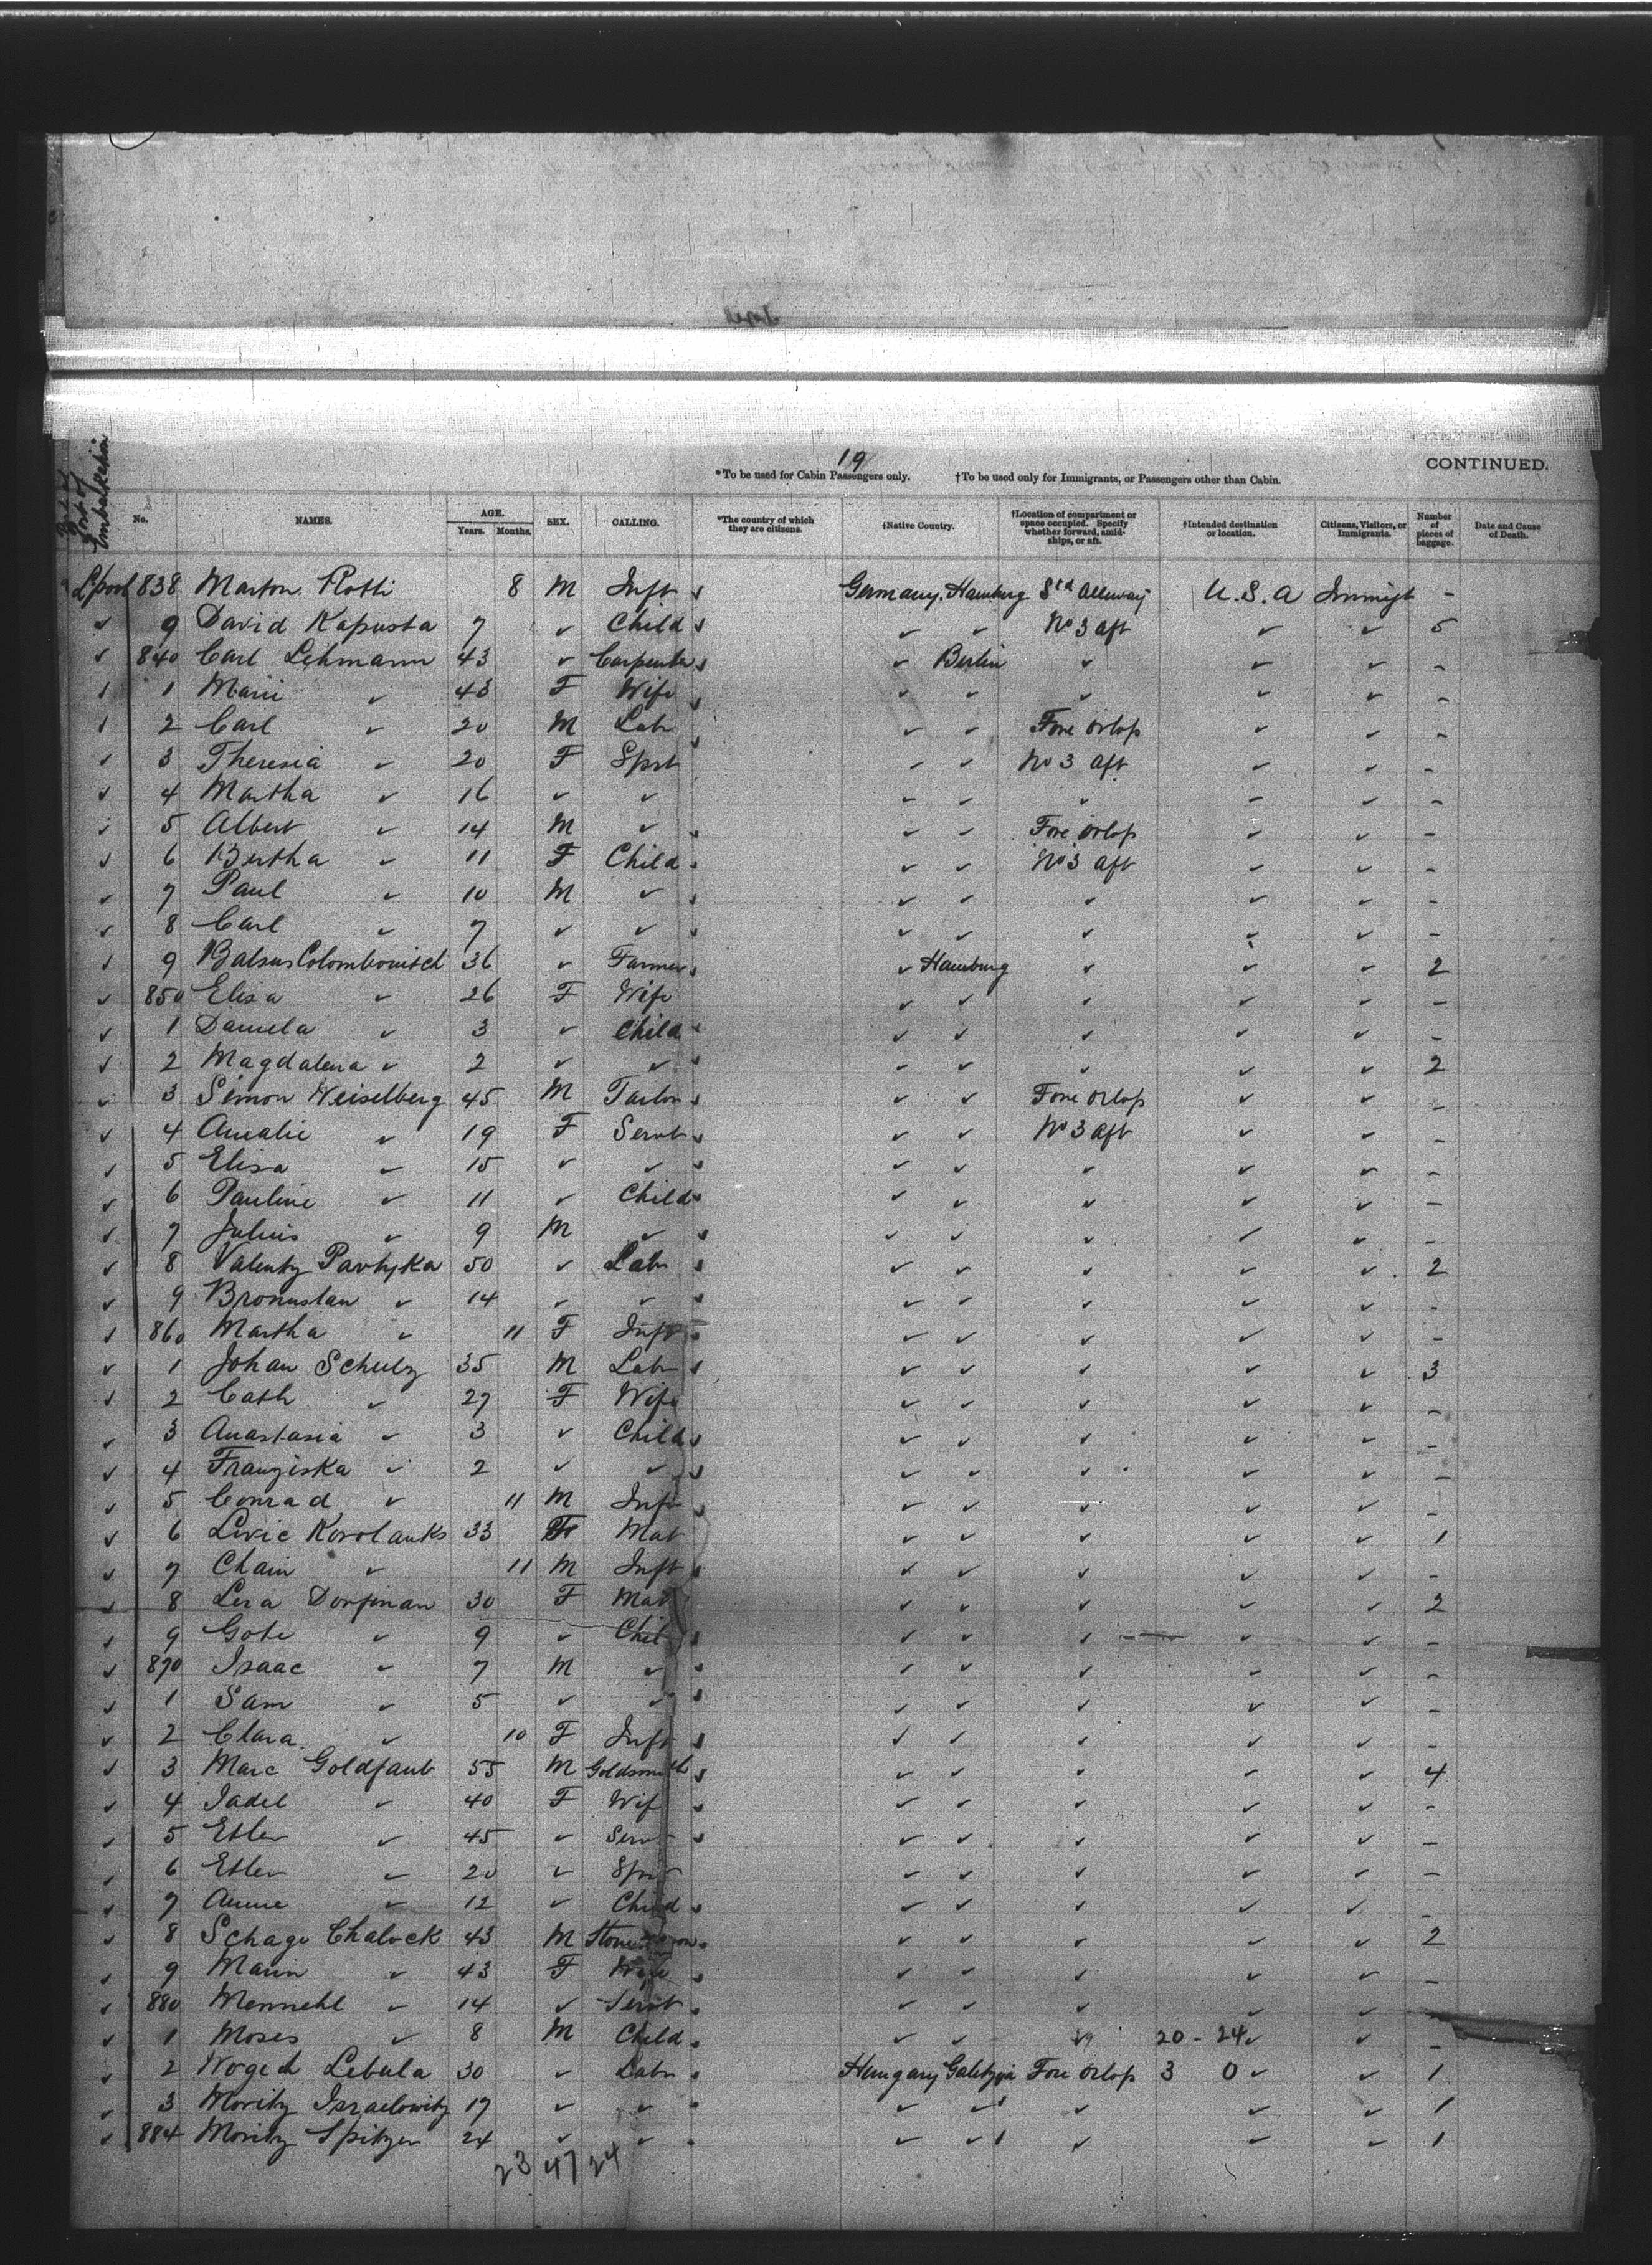 19
*To be used for Cabin Passengers only. †To be used only for Immigrants, or Passengers other than Cabin. CONTINUED.
Port of Embarkation
No. NAMES. AGE. Years. Months. SEX. CALLING. *The country of which they are citizens. †Native Country. †Location of compartment or space occupied. Specify whether forward, amidships, or aft. †Intended destination or location. Citizens, Visitors, or Immigrants. Number of pieces of baggage. Date and Cause of Death.
L'pool 838 Marton Rotti 8 M Inft Germany, Hamburg Std Alleway U.S.A Immigt -
✓ 9 David Kapusta 7 ✓ Child ✓ ✓ No 3 aft ✓ ✓ 5
✓ 840 Carl Lehmann 43 ✓ Carpenter ✓ Berlin ✓ ✓ ✓ -
✓ 1 Marie ✓ 43 F Wife ✓ ✓ ✓ ✓ ✓ -
✓ 2 Carl ✓ 20 M Labr ✓ ✓ Fore Orlop ✓ ✓ -
✓ 3 Theresia ✓ 20 F Spst ✓ ✓ No 3 aft ✓ ✓ -
✓ 4 Martha ✓ 16 ✓ ✓ ✓ ✓ ✓ ✓ ✓ -
✓ 5 Albert ✓ 14 M ✓ ✓ ✓ Fore Orlop ✓ ✓ -
✓ 6 Bertha ✓ 11 F Child ✓ ✓ No 3 aft ✓ ✓ -
✓ 7 Paul ✓ 10 M ✓ ✓ ✓ ✓ ✓ ✓ -
✓ 8 Carl ✓ 7 ✓ ✓ ✓ ✓ ✓ ✓ ✓ -
✓ 9 Balsus Colombovitch 36 ✓ Farmer ✓ Hamburg ✓ ✓ ✓ 2
✓ 850 Elisa ✓ 26 F Wife ✓ ✓ ✓ ✓ ✓ -
✓ 1 Daniela ✓ 3 ✓ Child ✓ ✓ ✓ ✓ ✓ -
✓ 2 Magdalena ✓ 2 ✓ ✓ ✓ ✓ ✓ ✓ ✓ 2
✓ 3 Simon Weiselberg 45 M Tailor ✓ ✓ Fore Orlop ✓ ✓ -
✓ 4 Amalie ✓ 19 F Servt ✓ ✓ No 3 aft ✓ ✓ -
✓ 5 Elisa ✓ 15 ✓ ✓ ✓ ✓ ✓ ✓ ✓ -
✓ 6 Pauline ✓ 11 ✓ Child ✓ ✓ ✓ ✓ ✓ -
✓ 7 Julius ✓ 9 M ✓ ✓ ✓ ✓ ✓ ✓ -
✓ 8 Valenty Pavtyka 50 ✓ Labr ✓ ✓ ✓ ✓ ✓ 2
✓ 9 Bronnslau ✓ 14 ✓ ✓ ✓ ✓ ✓ ✓ ✓ -
✓ 860 Martha ✓ 11 F Inft ✓ ✓ ✓ ✓ ✓ -
✓ 1 Johan Schulz 35 M Labr ✓ ✓ ✓ ✓ ✓ 3
✓ 2 Cath ✓ 27 F Wife ✓ ✓ ✓ ✓ ✓ -
✓ 3 Anastasia ✓ 3 ✓ Child ✓ ✓ ✓ ✓ ✓ -
✓ 4 Franziska ✓ 2 ✓ ✓ ✓ ✓ ✓ ✓ ✓ -
✓ 5 Conrad ✓ 11 M Inft ✓ ✓ ✓ ✓ ✓ -
✓ 6 Livie Korolanks 33 F Mat ✓ ✓ ✓ ✓ ✓ 1
✓ 7 Chain ✓ 11 M Inft ✓ ✓ ✓ ✓ ✓ -
✓ 8 Lera Dorfman 30 F Mat ✓ ✓ ✓ ✓ ✓ 2
✓ 9 Gote ✓ 9 ✓ Chil ✓ ✓ ✓ ✓ ✓ -
✓ 870 Isaac ✓ 7 M ✓ ✓ ✓ ✓ ✓ ✓ -
✓ 1 Sam ✓ 5 ✓ ✓ ✓ ✓ ✓ ✓ ✓ -
✓ 2 Clara ✓ 10 F Inft ✓ ✓ ✓ ✓ ✓ -
✓ 3 Marc Goldfaub 55 M Goldsmith ✓ ✓ ✓ ✓ ✓ 4
✓ 4 Jadel ✓ 40 F Wif ✓ ✓ ✓ ✓ ✓ -
✓ 5 Etler ✓ 45 ✓ Serv ✓ ✓ ✓ ✓ ✓ -
✓ 6 Etler ✓ 20 ✓ Spr ✓ ✓ ✓ ✓ ✓ -
✓ 7 Anne ✓ 12 ✓ Child ✓ ✓ ✓ ✓ ✓ -
✓ 8 Schage Chalock 43 M Stone mason ✓ ✓ ✓ ✓ ✓ 2
✓ 9 Marin ✓ 43 F Wife ✓ ✓ ✓ ✓ ✓ -
✓ 880 Mennehl ✓ 14 ✓ Servt ✓ ✓ ✓ ✓ ✓ -
✓ 1 Moses ✓ 8 M Child ✓ ✓ ✓ 20 - 24 ✓ ✓ -
✓ 2 Woged Lebula 30 ✓ Labr Hungary Galitzia Fore Orlop 3 0 ✓ ✓ 1
✓ 3 Moritz Israelowitz 17 ✓ ✓ ✓ ✓ ✓ ✓ ✓ 1
✓ 884 Moritz Spitzer 24 ✓ ✓ ✓ ✓ ✓ ✓ ✓ 1
23 47 24